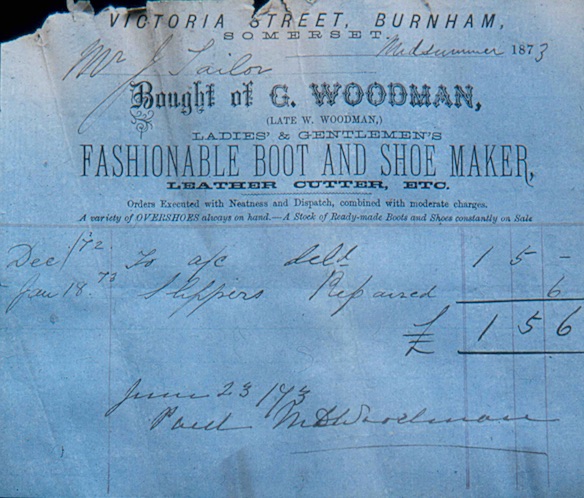 VICTORIA STREET, BURNHAM,
SOMERSET.
Midsummer 1873
Mr J Tailor
Bought of G. WOODMAN,
(LATE W. WOODMAN,)
LADIES' & GENTLEMEN'S
FASHIONABLE BOOT AND SHOE MAKER,
LEATHER CUTTER, ETC.
Orders Executed with Neatness and Dispatch, combined with moderate charges.
A variety of OVERSHOES always on hand.—A Stock of Ready-made Boots and Shoes constantly on Sale
Dec /72. To a/c deld 1 5 -
Jan 18. 73 Slippers Repaired 6
£ 1 5 6
June 23 /73
Paid Woodman